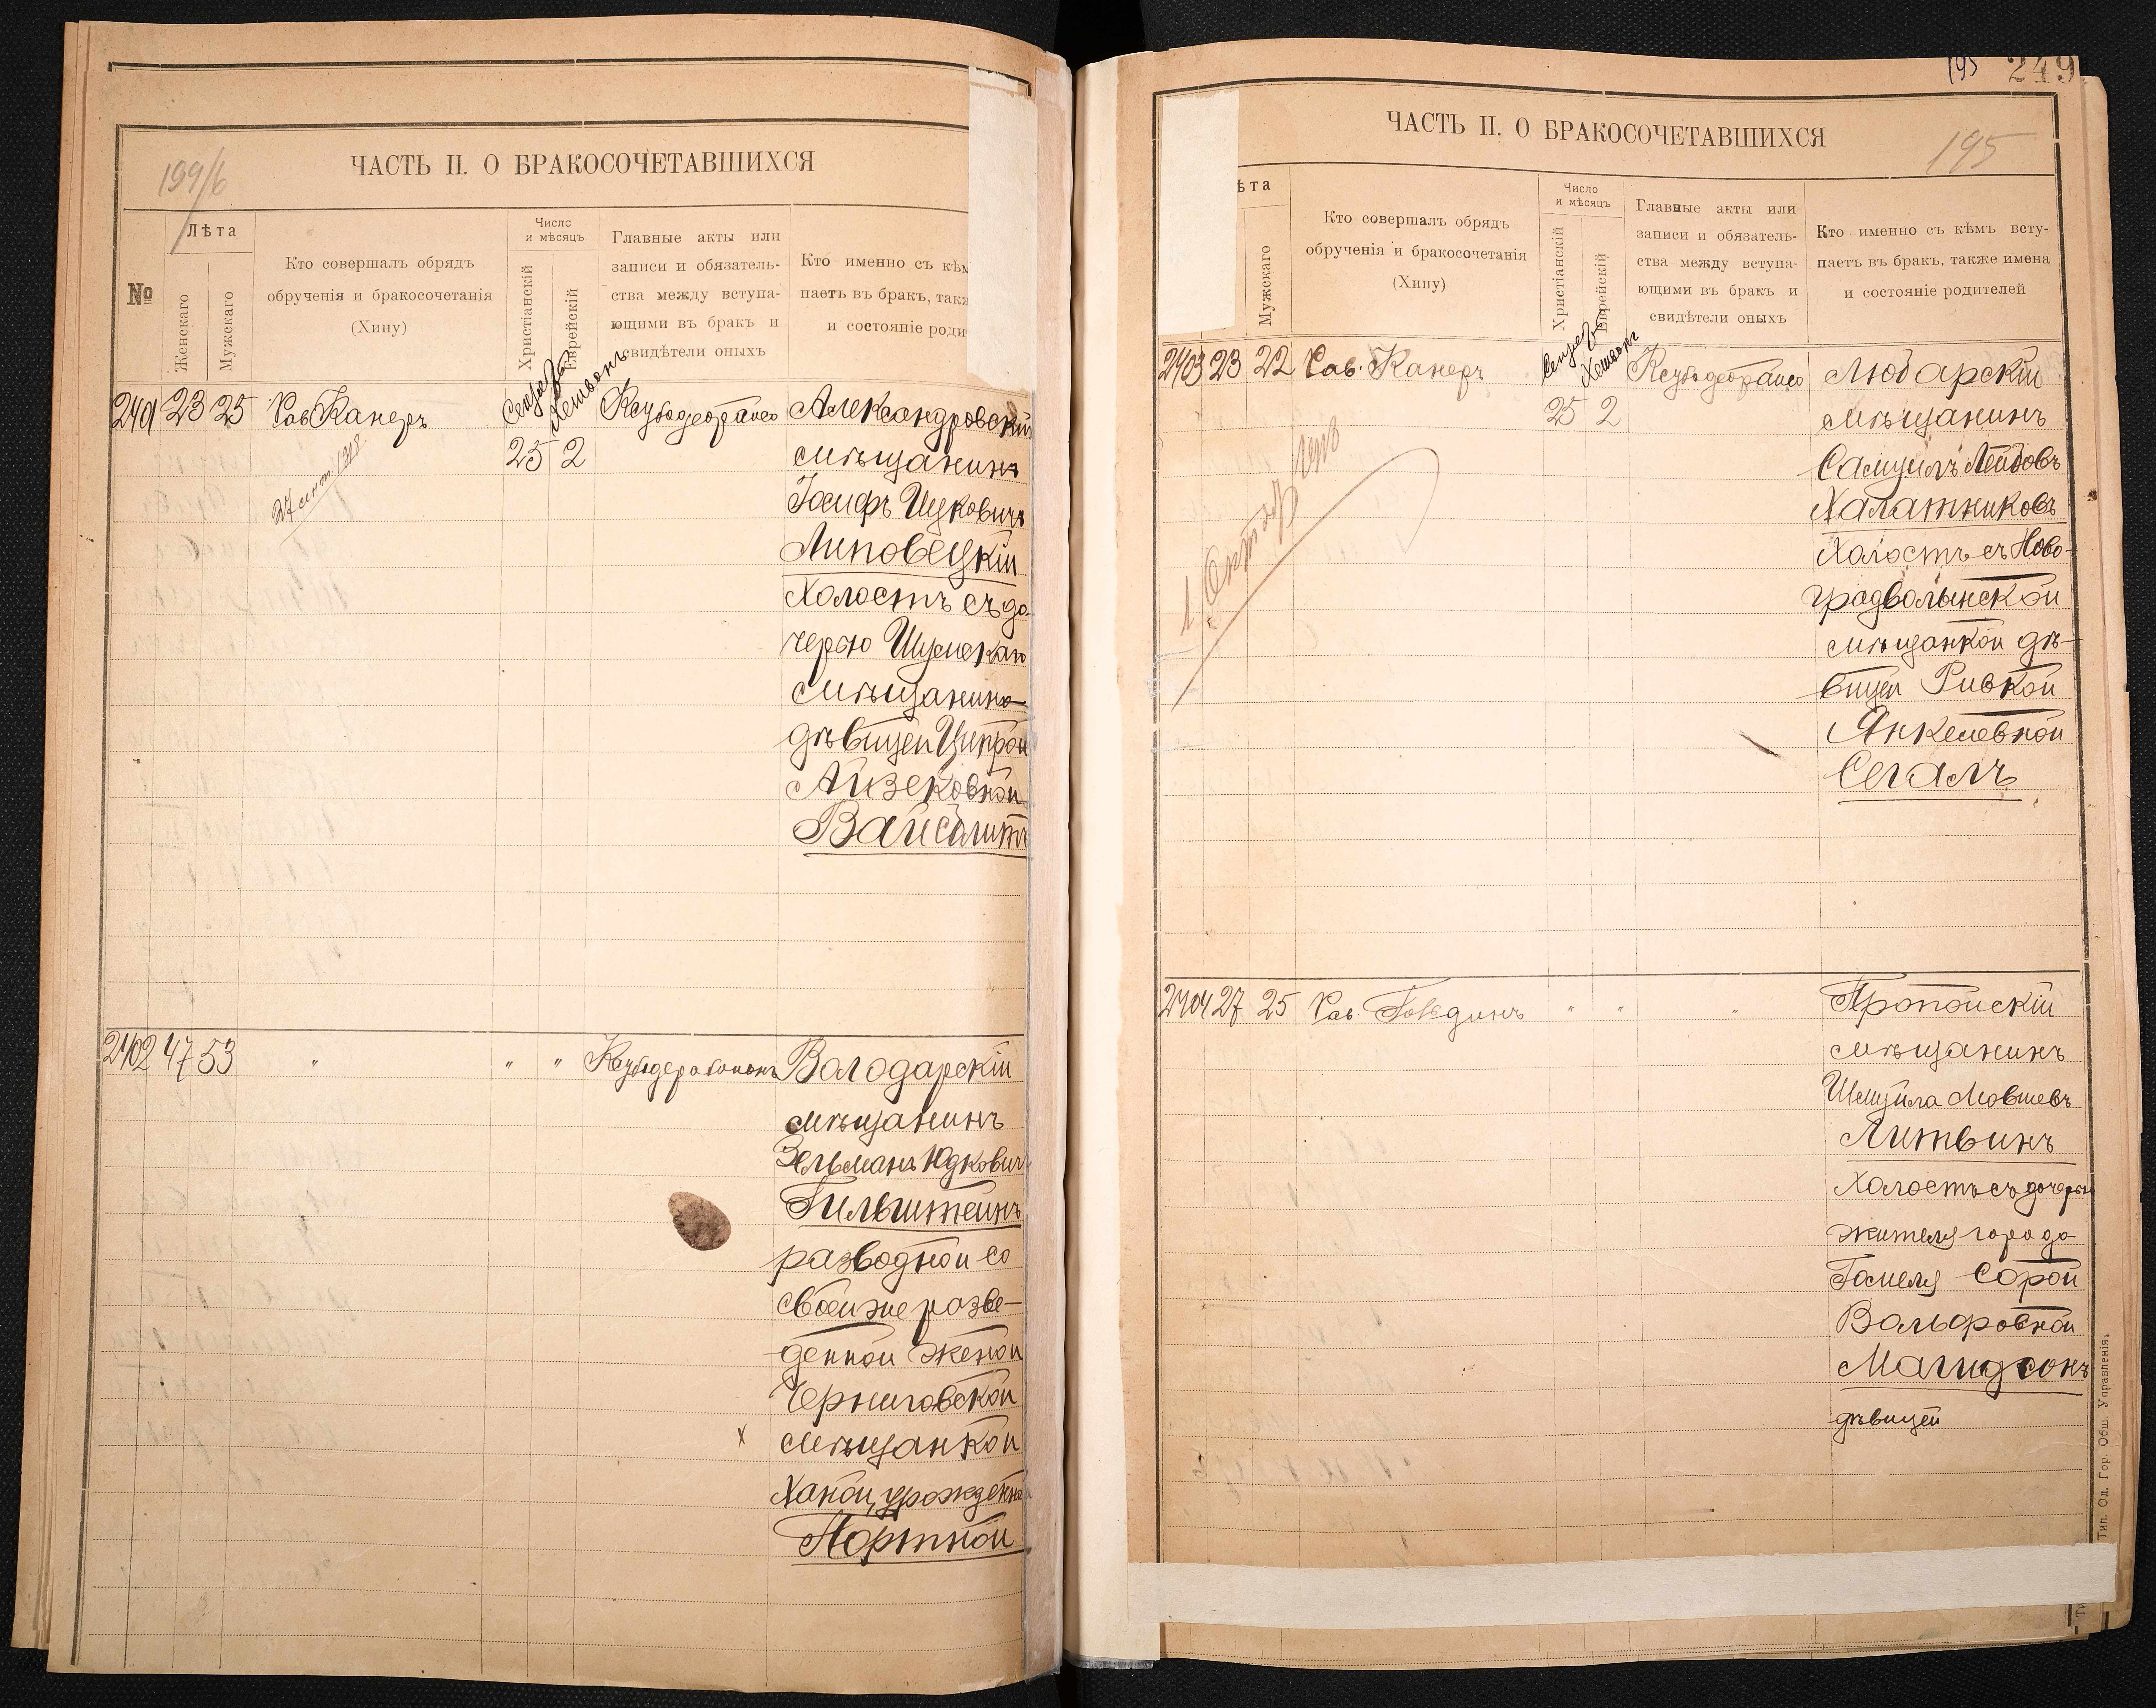 199/6
ЧАСТЬ II. О БРАКОСОЧЕТАВШИХСЯ
№
Лѣта
Женскаго
Мужскаго
Кто совершалъ обрядъ
обрученія и бракосочетанія
(Хипу)
Число
и мѣсяцъ
Христіанскій
Еврейскій
Главные акты или
записи и обязатель-
ства между вступа-
ющими въ бракъ и
свидѣтели оныхъ
Кто именно съ кѣм
паетъ въ бракъ, такж
и состояніе роди
2401 23 25 Рав Канеръ
25 2
Александровскій
мѣщанинъ
Іосифъ Ицковичъ
Липовецкій
Холостъ съ до-
черью Шумскаго
мѣщанина
дѣвицей Ципрой
Айзековной
Вайсблитъ
27 сент. 1918
2402 47 53 " " "
Володарскій
мѣщанинъ
Зельманъ Юдковичъ
Гильштейнъ
разводной со
своей же разве-
денной женой
Черниговской
х мѣщанкой
Ханой, урожденной
Портной
195 249
ЧАСТЬ II. О БРАКОСОЧЕТАВШИХСЯ
195
ѣта
Мужскаго
Кто совершалъ обрядъ
обрученія и бракосочетанія
(Хипу)
Число
и мѣсяцъ
Христіанскій
Еврейскій
Главные акты или
записи и обязатель-
ства между вступа-
ющими въ бракъ и
свидѣтели оныхъ
Кто именно съ кѣмъ всту-
паетъ въ бракъ, также имена
и состояніе родителей
2403 23 22 Рав. Канеръ
25 2
Любарскій
мѣщанинъ
Самуилъ Лейбовъ
Халатниковъ
Холостъ съ Ново-
градволынской
мѣщанкой дѣ-
вицей Ривкой
Янкелевной
Сегалъ
2404 27 25 Рав. " " "
Пропойскій
мѣщанинъ
Шмуйла Мовшевъ
Литвинъ
Холостъ съ дочерью
жителя города
Гомеля Сорой
Вольфовной
Магидсонъ
дѣвицей
Тип. Од. Гор. Общ. Управленія.